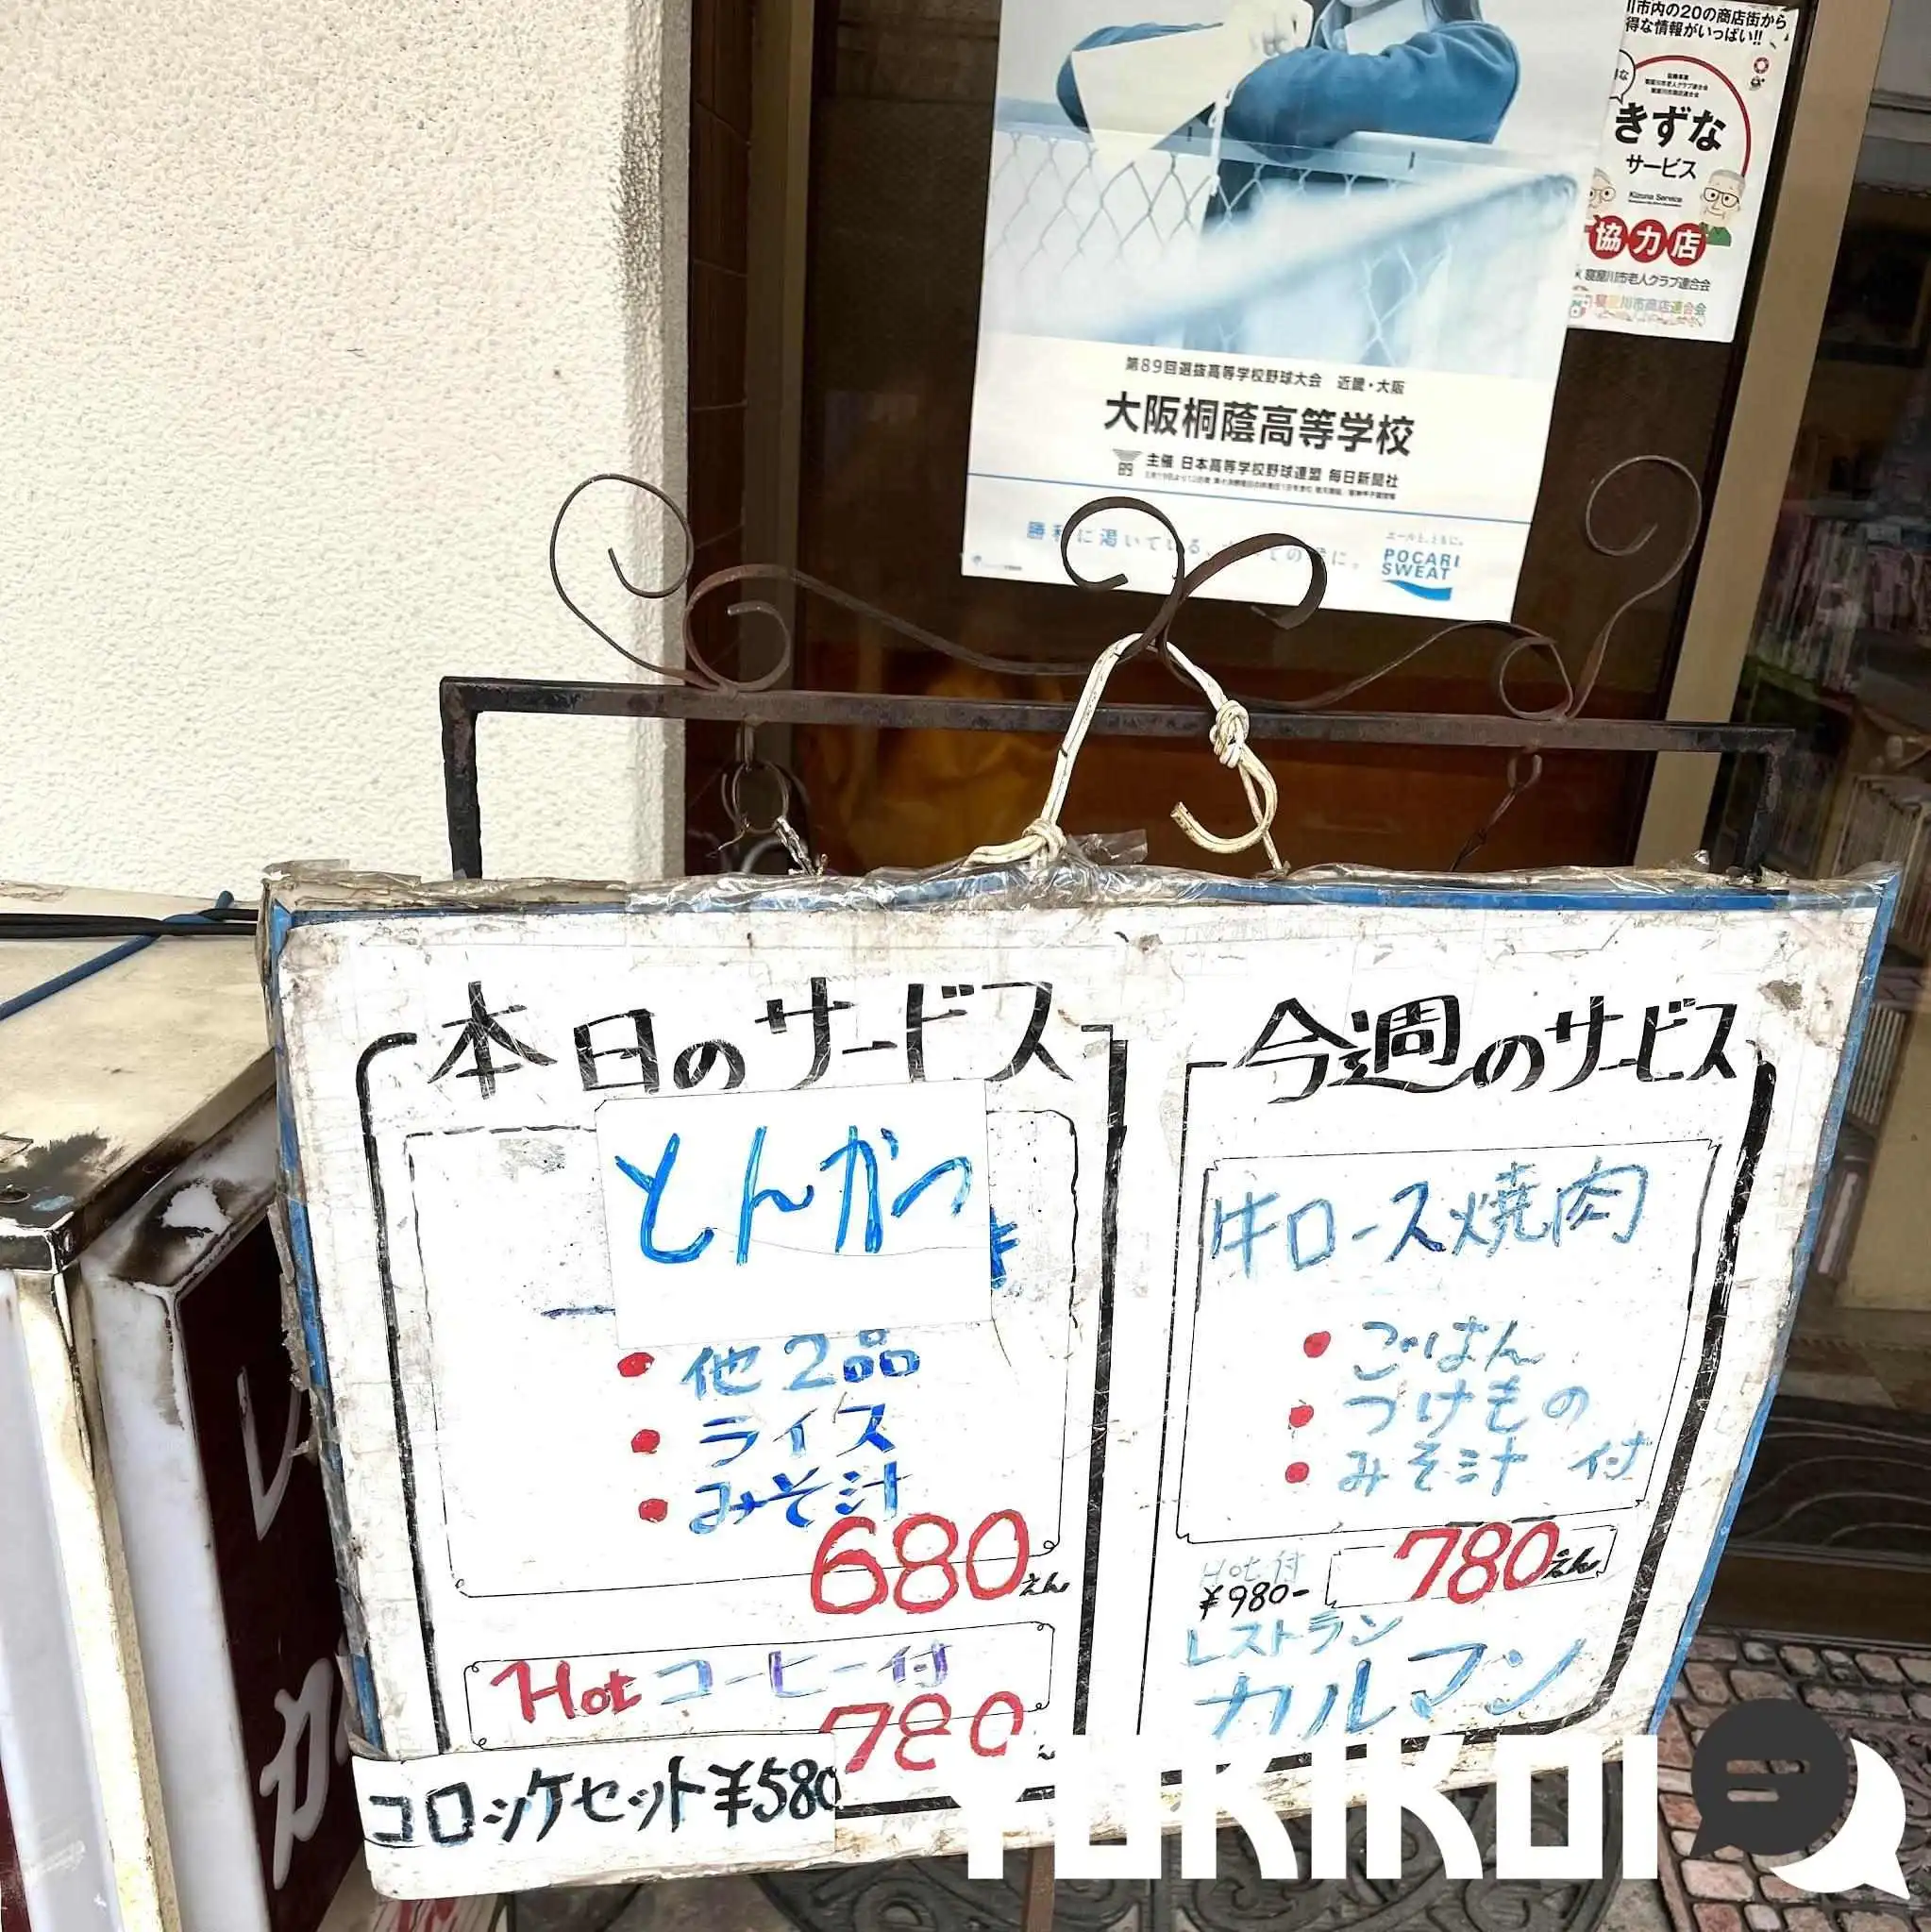 川市内の20の商店街から
得な情報がいっぱい!!
きずな
サービス
Kizuna Service
協力店
寝屋川市老人クラブ連合会
寝屋川市商店連合会
第89回選抜高等学校野球大会 近畿・大阪
大阪桐蔭高等学校
主催 日本高等学校野球連盟 毎日新聞社
エールと、ともに。
POCARI
SWEAT
本日のサービス
とんかつ
• 他2品
• ライス
• みそ汁
680えん
Hotコーヒー付
780
コロッケセット¥580
今週のサービス
牛ロース焼肉
• ごはん
• つけもの
• みそ汁 付
Hot付
¥980-
780えん
レストラン
カルマン
YUKIKOI